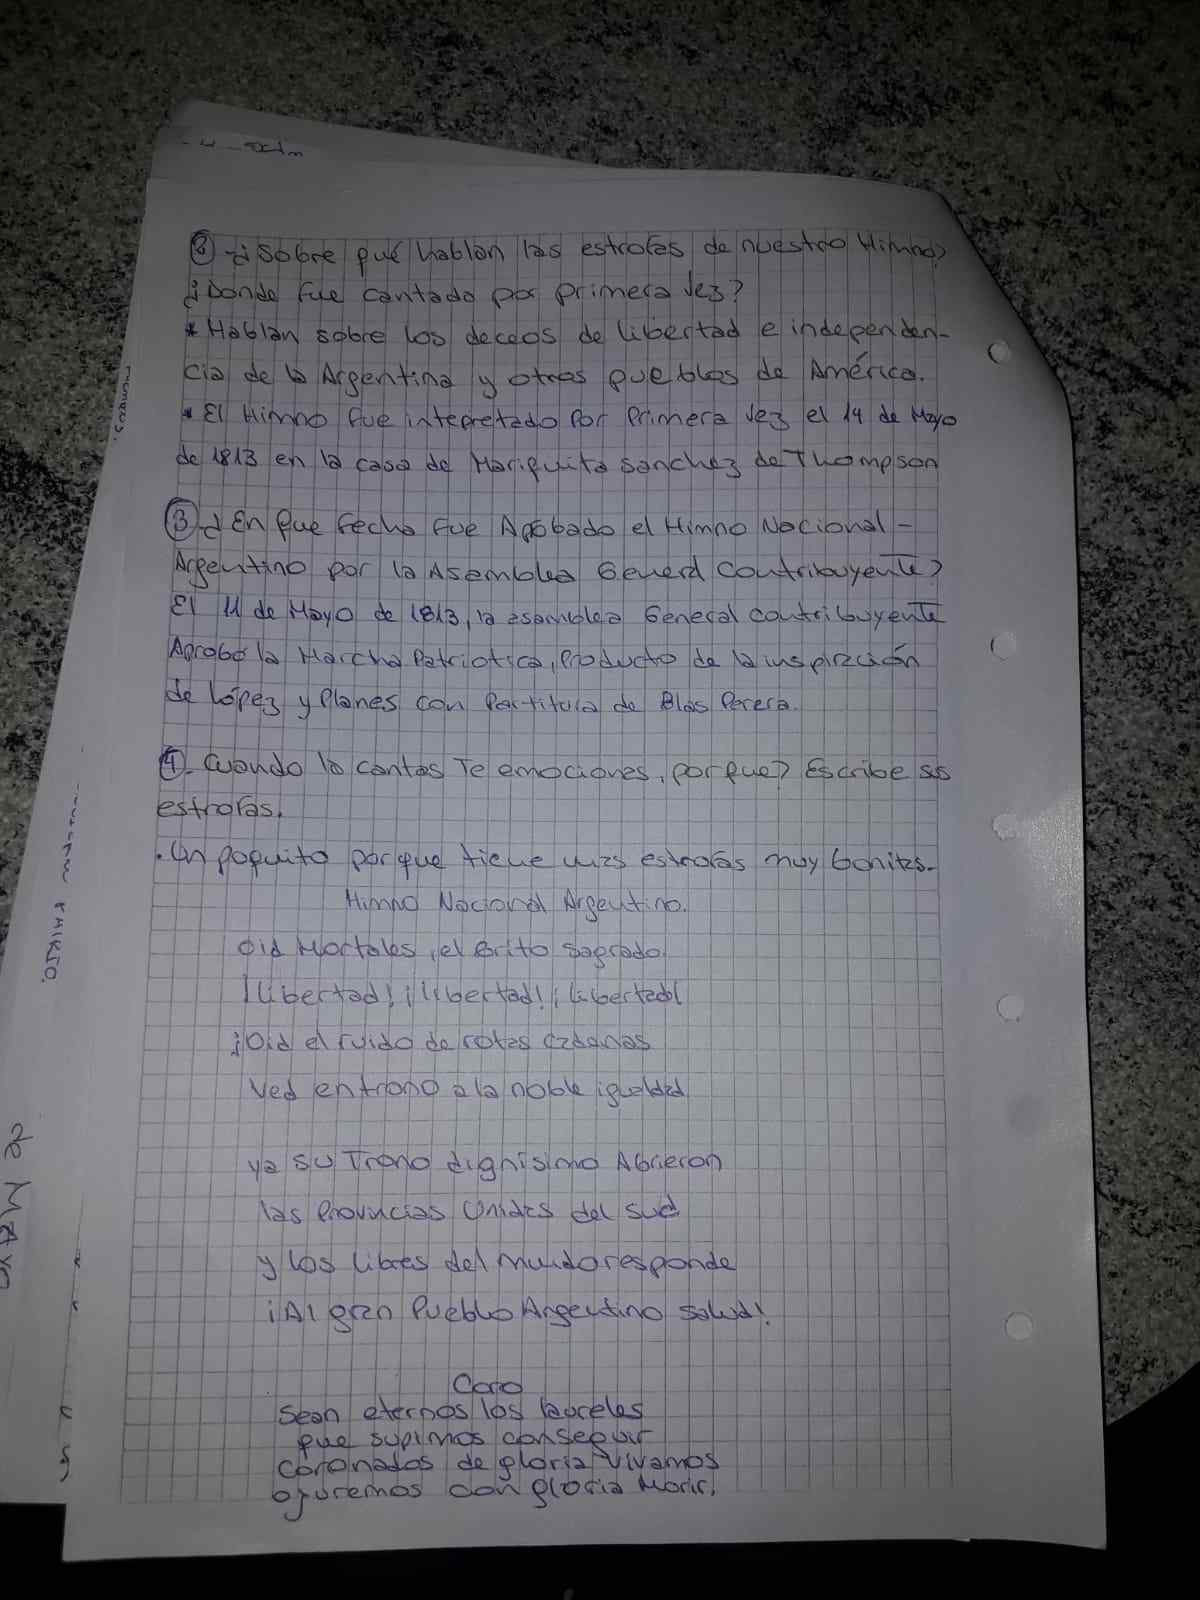 ② -¿Sobre qué hablan las estrofas de nuestro Himno?
¿Donde fue cantado por primera vez?
* Hablan sobre los deceos de libertad e independen-
cia de la Argentina y otros pueblos de América.
* El Himno fue intepretado por primera vez el 14 de Mayo
de 1813 en la casa de Mariquita Sanchez de Thompson
③-¿En que fecha fue Apobado el Himno Nacional -
Argentino por la Asamblea General Contribuyente?
El 11 de Mayo de 1813, la asamblea General contribuyente
Aprobó la Marcha Patriotica, Producto de la inspiración
de López y Planes con Partitura de Blas Perera.
④. Cuando lo cantas Te emociones, porque? Escribe sus
estrofas.
. Un poquito porque tiene unas estrofas muy bonitas.
Himno Nacional Argentino.
Oid Mortales, el Grito Sagrado
¡Libertad! ¡Libertad! ¡Libertad!
¡Oid el ruido de rotas cadenas
Ved en trono a la noble igualdad
ya su Trono dignísimo Abrieron
las Provincias Unidas del sud
y los libres del mundo responde
¡Al gran Pueblo Argentino salud!
Coro
Sean eternos los laureles
que supimos conseguir
coronados de gloria vivamos
o juremos con gloria Morir.
KAIRJO.
de MAYO